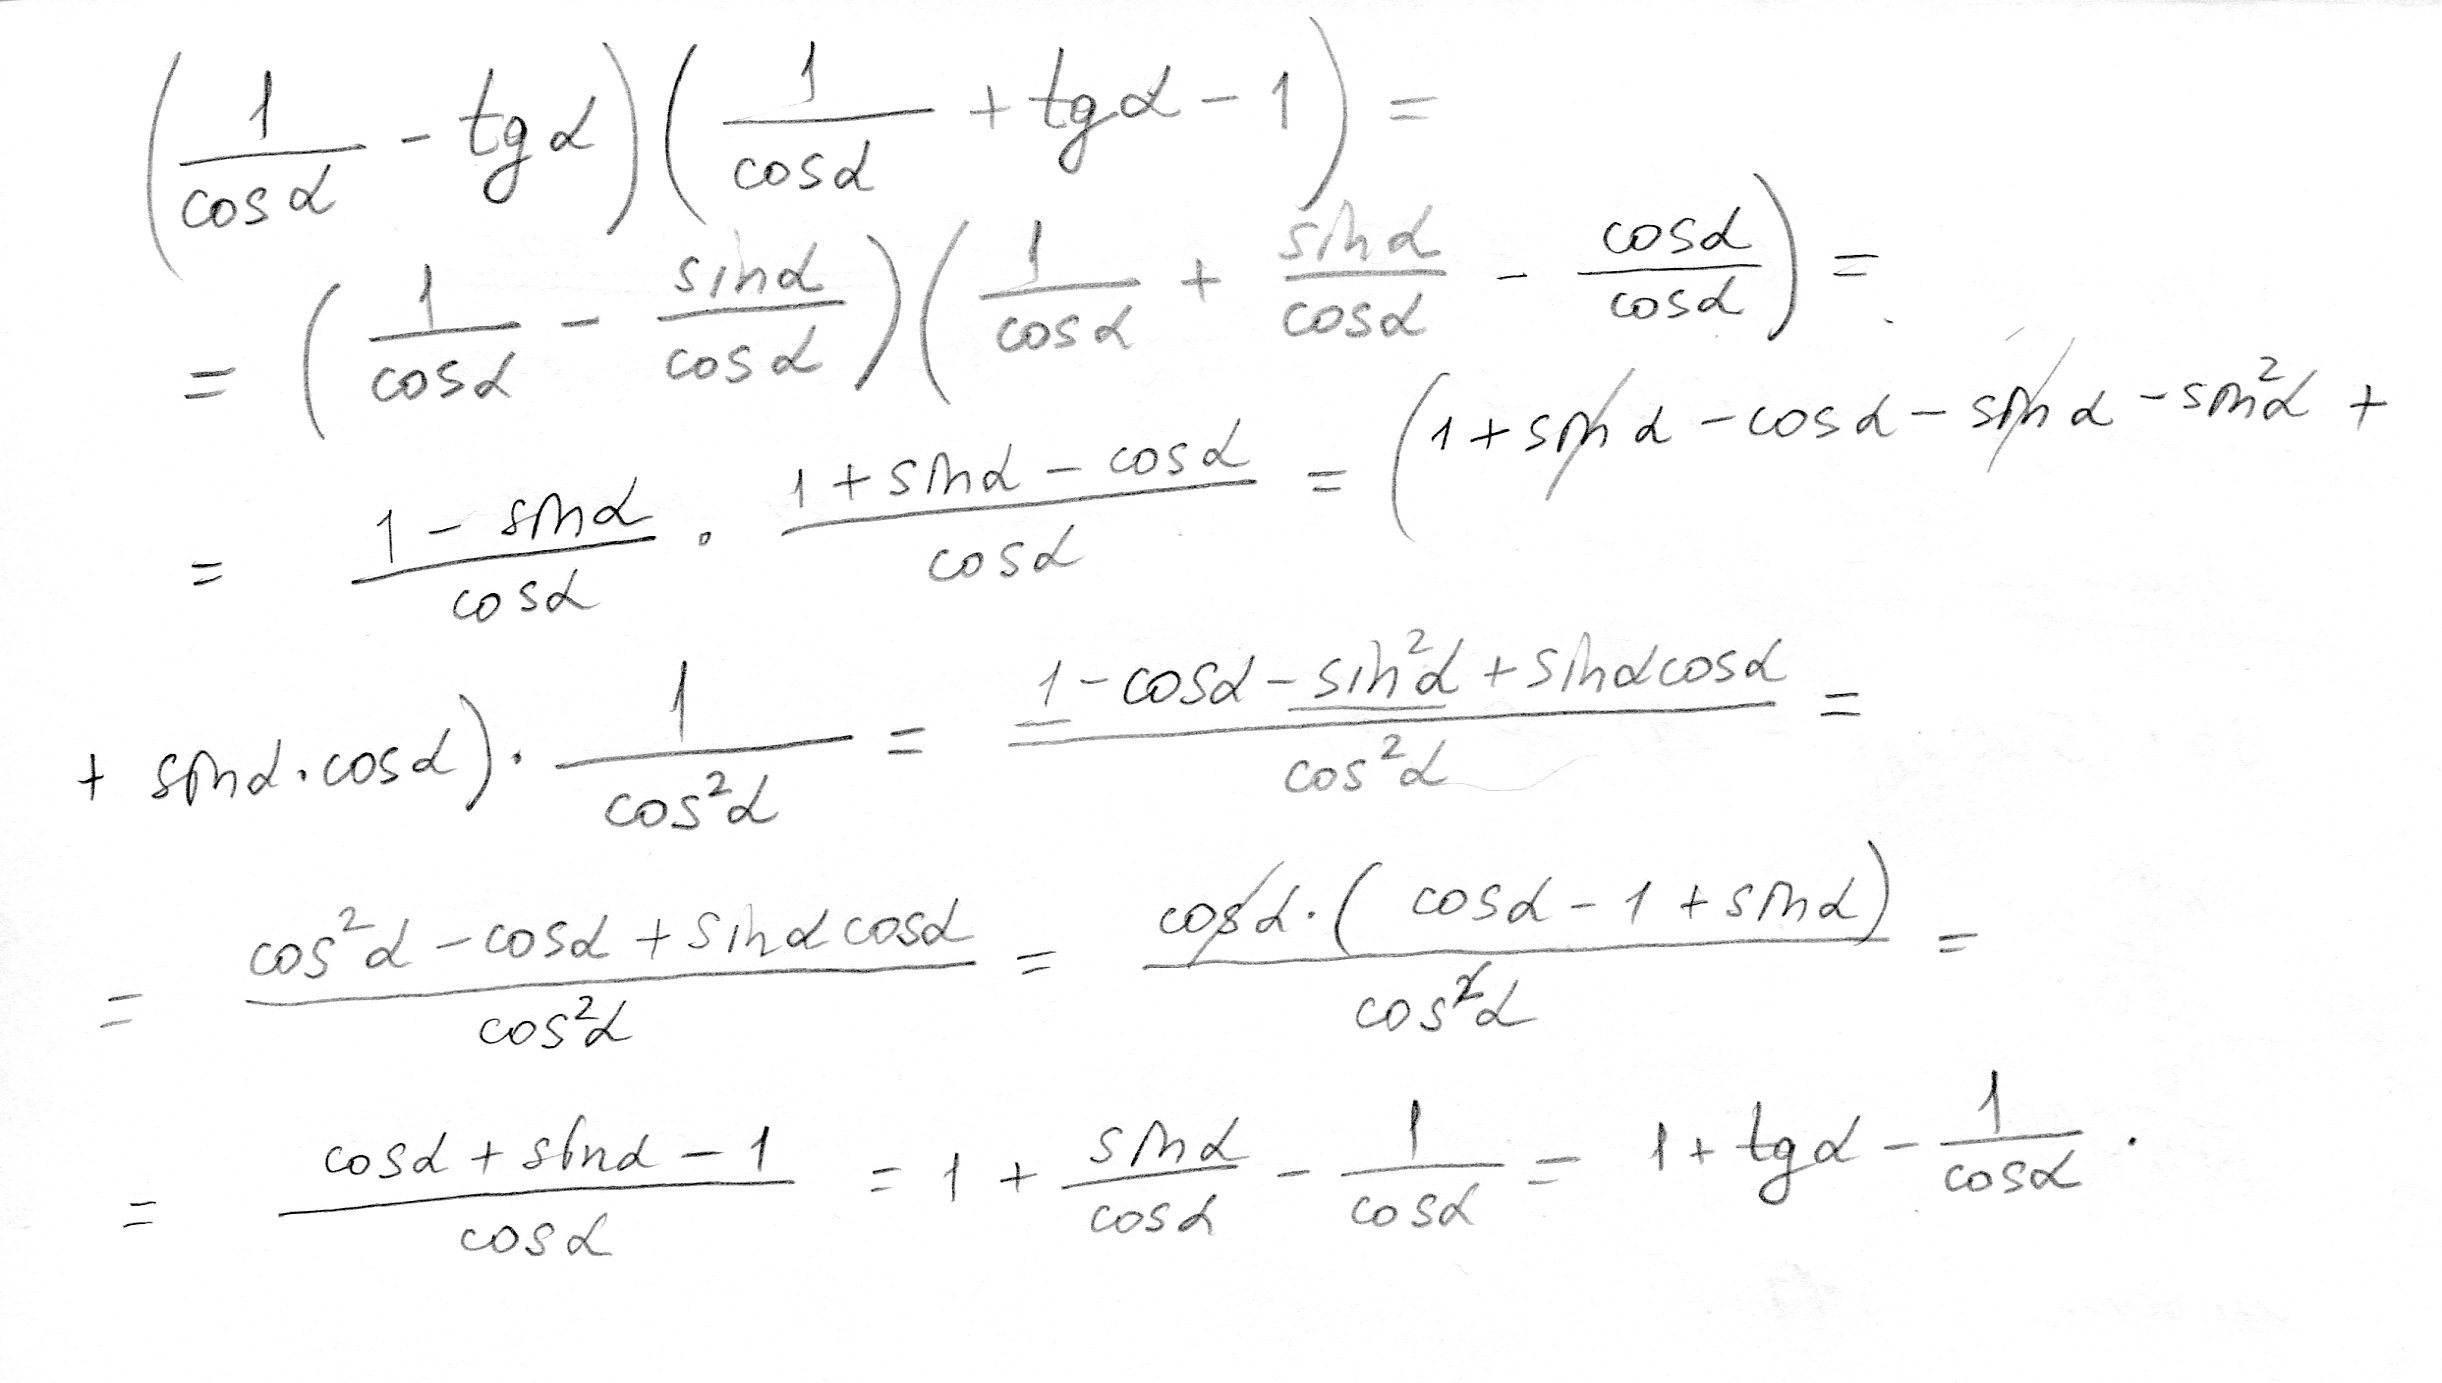 (1/cosα - tgα)(1/cosα + tgα - 1) =
= (1/cosα - sinα/cosα)(1/cosα + sinα/cosα - cosα/cosα) =
= (1 - sinα)/cosα · (1 + sinα - cosα)/cosα = (1 + sinα - cosα - sinα - sin²α +
+ sinα · cosα) · 1/cos²α = (1 - cosα - sin²α + sinαcosα)/cos²α =
= (cos²α - cosα + sinαcosα)/cos²α = cosα · (cosα - 1 + sinα)/cos²α =
= (cosα + sinα - 1)/cosα = 1 + sinα/cosα - 1/cosα = 1 + tgα - 1/cosα .